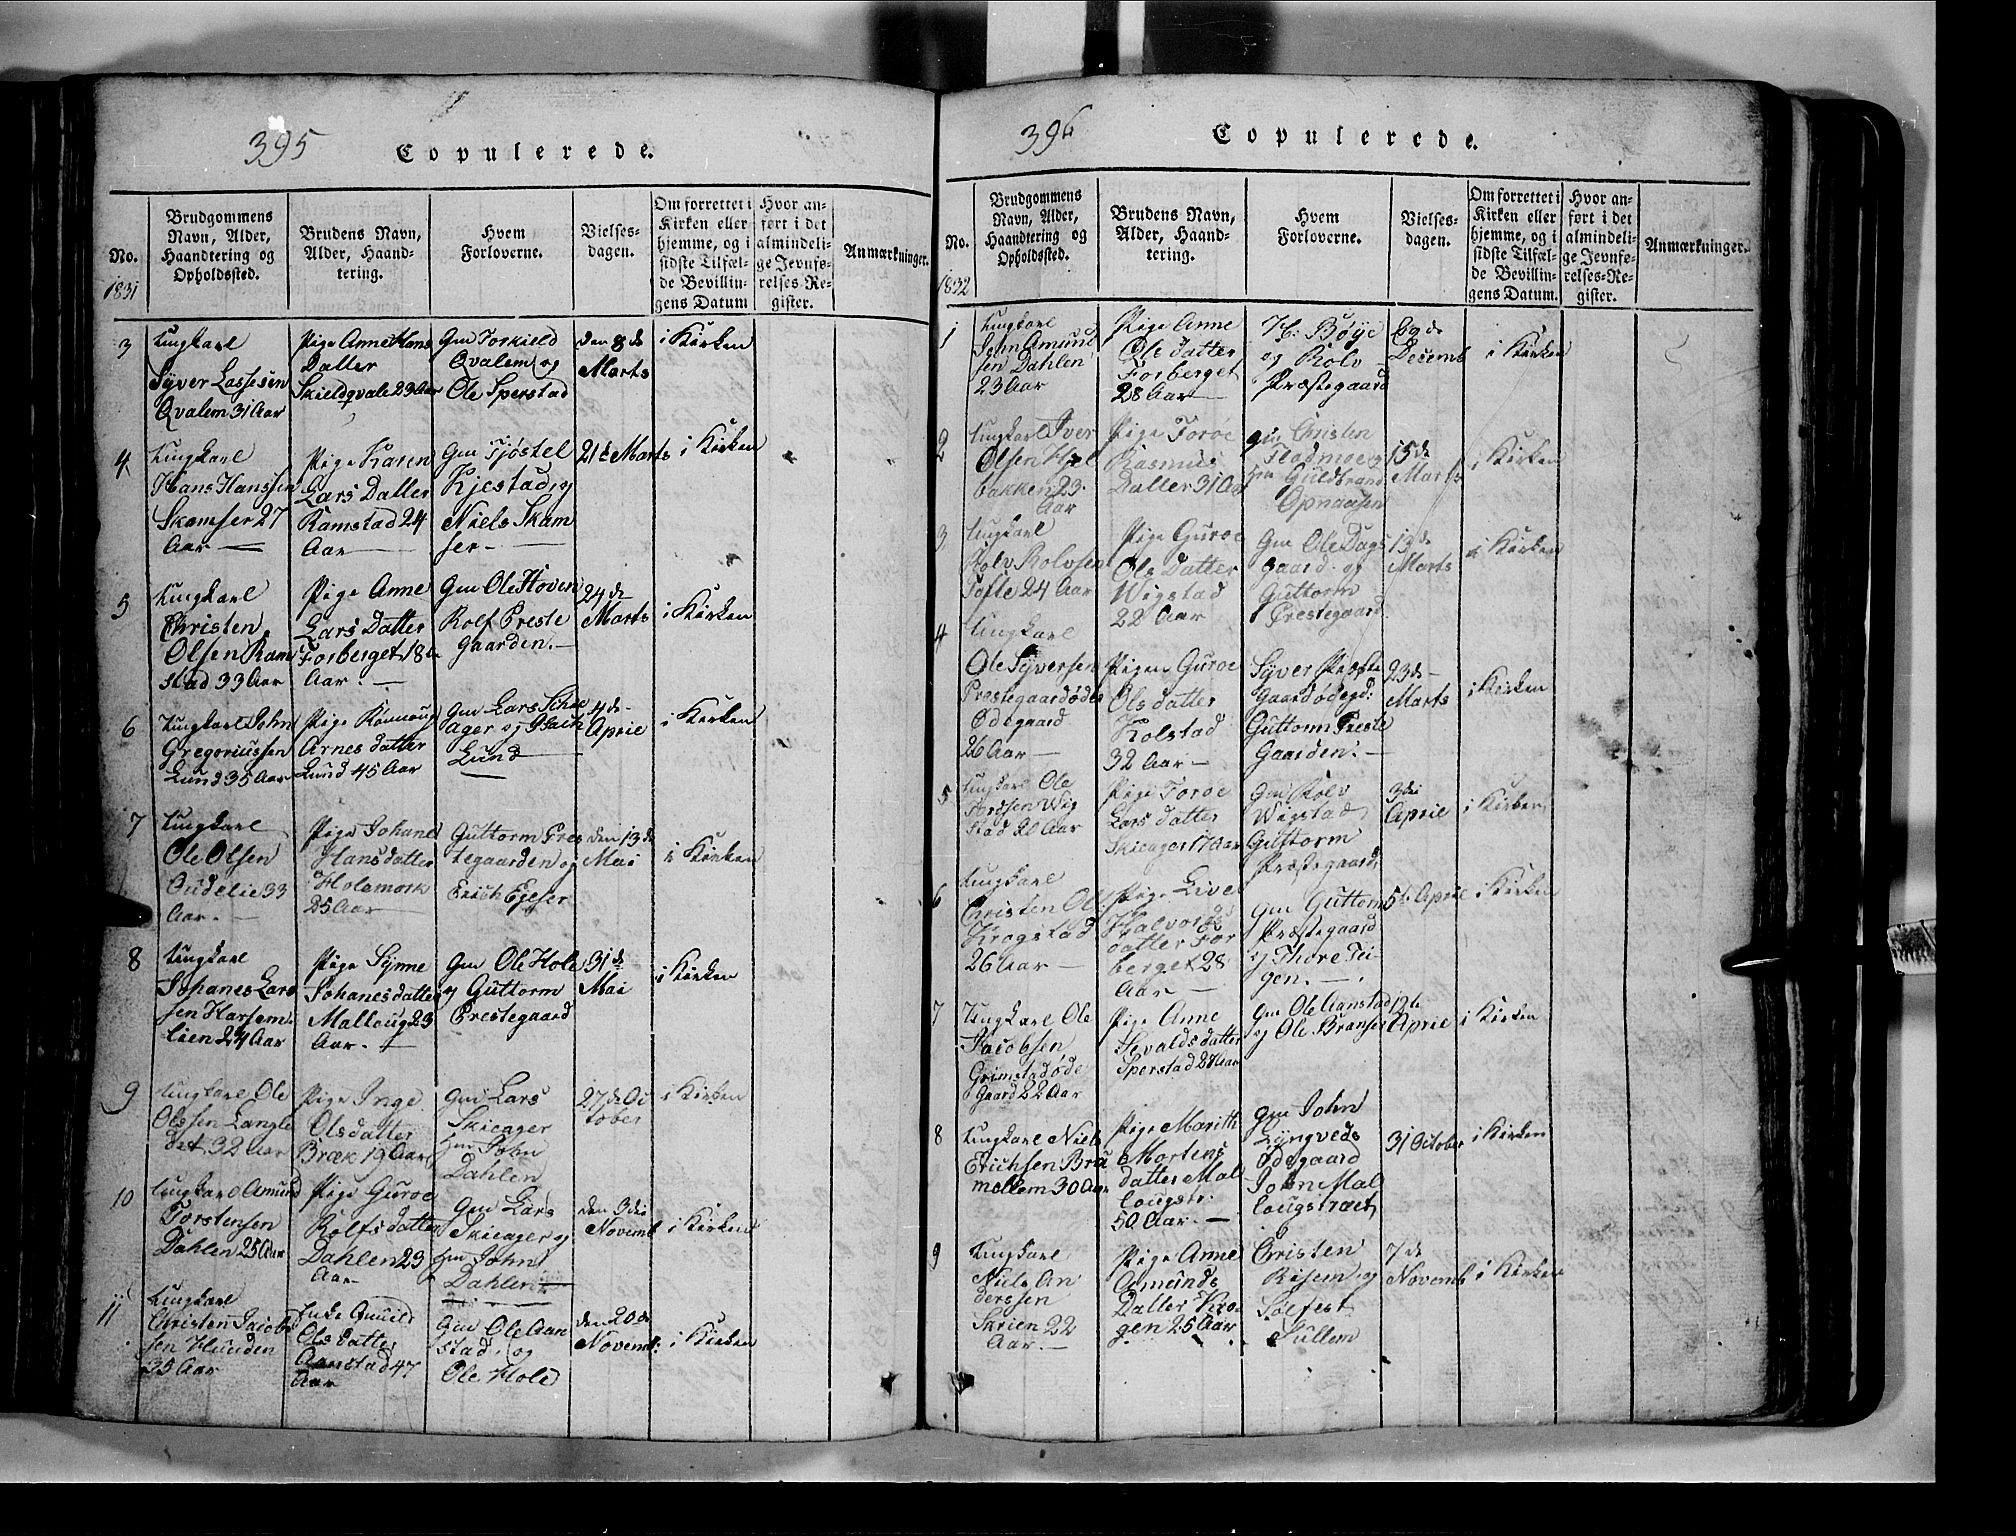 395
Copulerede.
No.
1831
Brudgommens
Navn, Alder,
Haandtering og
Opholdssted.
Brudens Navn,
Alder, Haand-
tering.
Hvem
Forloverne.
Vielses-
dagen.
Om forrettet i
Kirken eller
hjemme, og i
sidste Tilfæl-
de Bevillin-
gens Datum
Hvor an-
ført i det
almindeli-
ge Jevnfø-
relses-Re-
gister.
Anmærkninger.
3
Ungkarl
Syver Lassesen
Qvalem 31 Aar
Pige Anne Hans
Datter
Skieldqvale 23 Aar
Gm Torkield
Qvalem og
Ole Sperstad
den 8de
Marts
i Kirken
4
Ungkarl
Hans Hanssen
Skamser 27
Aar
Pige Karen
Lars Datter
Ramstad 24
Aar
Gm Tjøstel
Kjestad og
Niels Skam
ser
21de Marts
i Kirken
5
Ungkarl
Christen
Olsen Ram
stad 33 Aar
Pige Anne
Lars Datter
Forberget 18
Aar.
Gm Ole Hoven
Rolf Preste
Gaarden.
24de
Marts
i Kirken
6
Ungkarl John
Gregoriussen
Lund 35 Aar
Pige
Arnes datter
Lund 45 Aar
Gm Lars Skie
ager og
Lund
4de
Aprie
i Kirken
7
Ungkarl
Ole Olsen
33
Aar.
Pige Johane
Hansdatter
Holsmork
25 Aar
Guttorm Pres
tegaarden og
Erich Egeser
den 13de
Mai
i Kirken
8
Ungkarl
Johanes Lars
sen Harsem
lien 24 Aar
Pige Synne
Johanesdatter
Malloug 23
Aar.
Gm Ole Hole
og Guttorm
Prestegaard
31de
Mai
i Kirken
9
Ungkarl Ole
Olssen Langle
det 32 Aar
Pige Inge
Olsdatter
Bræk 19 Aar
Gm Lars
Skieager
Hm John
Dahlen
27de Oc
tober
i Kirken
10
Ungkarl Amund
Torstensen
Dahlen 25 Aar
Pige Guroe
Rolfsdatter
Dahlen 23
Aar
Gm Lars
Skieager og
Hm John
Dahlen
den 3die
Novemb
i Kirken
11
Ungkarl
Christen Jacob
sen Hunden
35 Aar
Enke
Olsdatter
Aanstad 47
Aar
Gm Ole Aan
stad og
Ole Hole
den 20de
Novemb:
i Kirken
396
Copulerede.
No.
1832
Brudgommens
Navn, Alder,
Haandtering og
Opholdssted.
Brudens Navn,
Alder, Haand-
tering.
Hvem
Forloverne.
Vielses-
dagen.
Om forrettet i
Kirken eller
hjemme, og i
sidste Tilfæl-
de Bevillin-
gens Datum.
Hvor an-
ført i det
almindeli-
ge Jevnfø-
relses-Re-
gister.
Anmærkninger.
1
Ungkarl
John Amund
sen Dahlen
23 Aar
Pige Anne
Ols datter
Forberget
28 Aar
Hr: Bøye
og Rolv
Præstegaard
Decemb
i Kirken
2
Ungkarl Iver
Olsen
bakken 23
Aar
Pige Toroe
Rasmus
Datter 31 Aar
Gm Christen
Fladmoe og
Hm Guldbrand
Opnaasen
15de
Marts
i Kirken
3
Ungkarl
Rolv Rolvsen
Tofte 24 Aar
Pige Guroe
Ols Datter
Wigstad
22 Aar
Gm Ole Dags
Gaard og
Guttorm
Prestegaard
13de
Marts
i Kirken
4
Ungkarl
Ole Syversen
Prestegaardøde
Ødegaard
26 Aar
Pigen Guroe
Olsdatter
Kolstad
32 Aar
Syver Præste
Gaardødegd:
Guttorm Preste
Gaarden.
23de
Marts
i Kirken
5
Ungkarl Ole
Wig
stad 20 Aar
Pige Toroe
Lars datter
Skieager 17 Aar
Gm Rolv
Wigstad
Guttorm
Præstegaard
3die
Aprie
i Kirken
6
Ungkarl
Christen Ols
Krogstad
26 Aar
Pige Live
Halvors
datter For
berget 28
Aar
Gm Guttorm
Præstegaard
og Thore Tei
gen.
5te Aprie
i Kirken
7
Ungkarl Ole
Jacobsen
Grimstadøde
Gaard 22 Aar
Pige Anne
Sevaldsdatter
Sperstad 27 Aar
Gm Ole Aanstad
og Ole Branser
12te
Aprie
i Kirken
8
Ungkarl Niels
Erichsen Bru
mellem 30 Aar
Pige Marith
Mortens
datter Mal
lougstr:
50 Aar.
Gm John
Lyngveds
Ødegaard
John Mal
lougstræet
31 October
i Kirken
9
Ungkarl
Niels An
derssen
Skrien 22
Aar.
Pige Anne
Amunds
Datter Kro
gen 25 Aar
Christen
Risem og
Solfest
Sullem
7de
Novemb
i Kirken